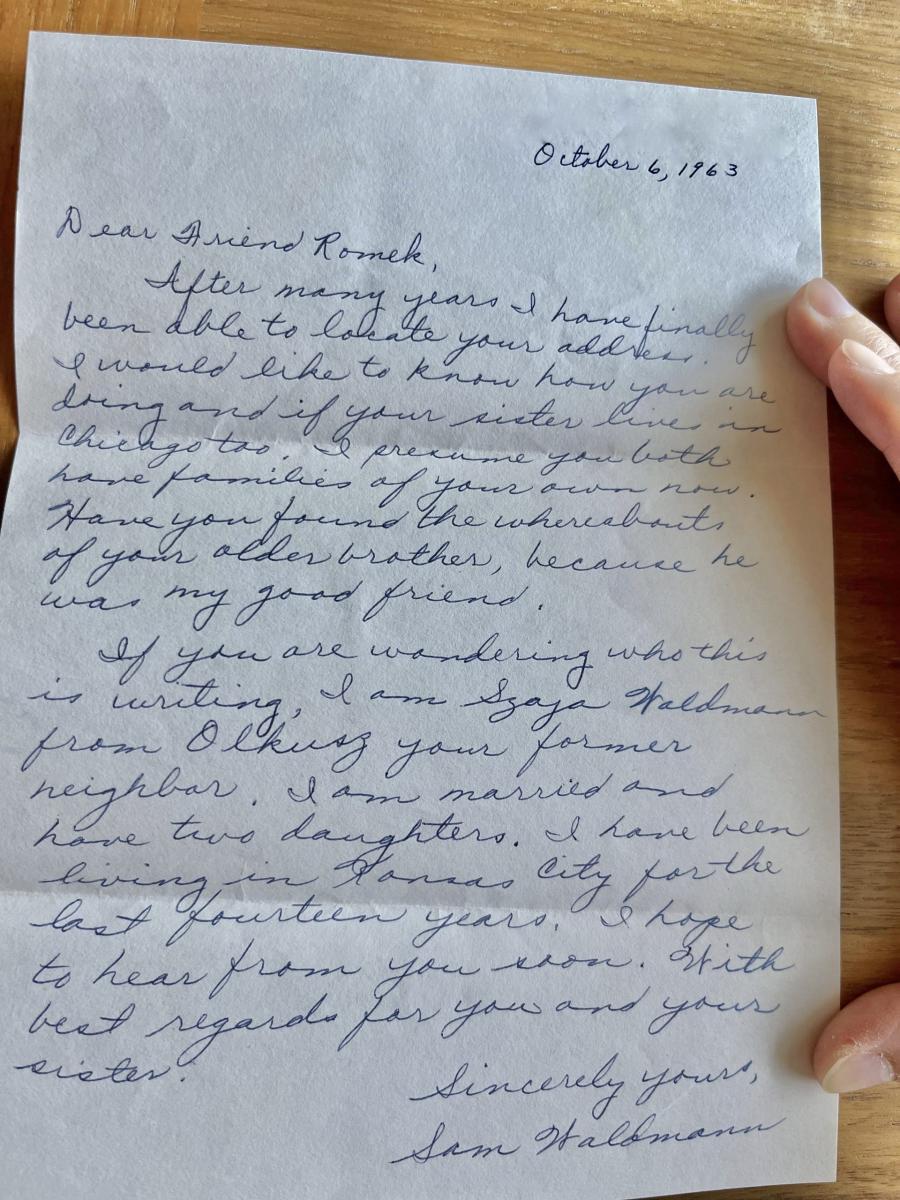 October 6, 1963
Dear Friend Romek,
After many years I have finally
been able to locate your address.
I would like to know how you are
doing and if your sister lives in
Chicago too. I presume you both
have families of your own now.
Have you found the whereabouts
of your older brother, because he
was my good friend.
If you are wondering who this
is writing, I am Szaja Waldmann
from Olkusz your former
neighbor. I am married and
have two daughters. I have been
living in Kansas City for the
last fourteen years. I hope
to hear from you soon. With
best regards for you and your
sister.
Sincerely yours,
Sam Waldmann